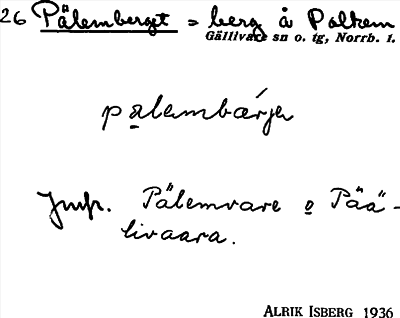 26 Pälemberget = berg å Palkem
Gällivare sn o. tg, Norrb. l.
palembárje
Jmfr. Pälemvare o Pää-
livaara.
ALRIK ISBERG 1936